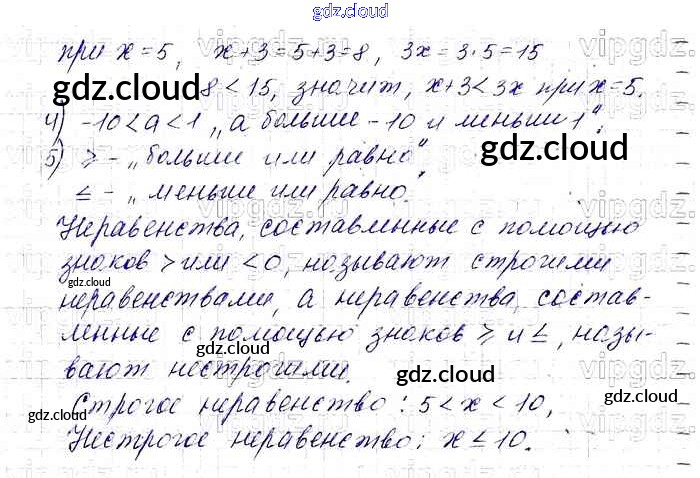 gdz.cloud
при x=5, x+3=5+3=8, 3x=3·5=15
8<15, значит, x+3<3x при x=5.
4) -10<a<1 „а больше -10 и меньше 1".
5) ≥ - „больше или равно"
≤ - „меньше или равно".
Неравенства, составленные с помощью
знаков > или <0, называют строгими
неравенствами, а неравенства, состав-
ленные с помощью знаков ≥ и ≤, назы-
вают нестрогими.
Строгое неравенство: 5<x<10,
Нестрогое неравенство: x≤10.